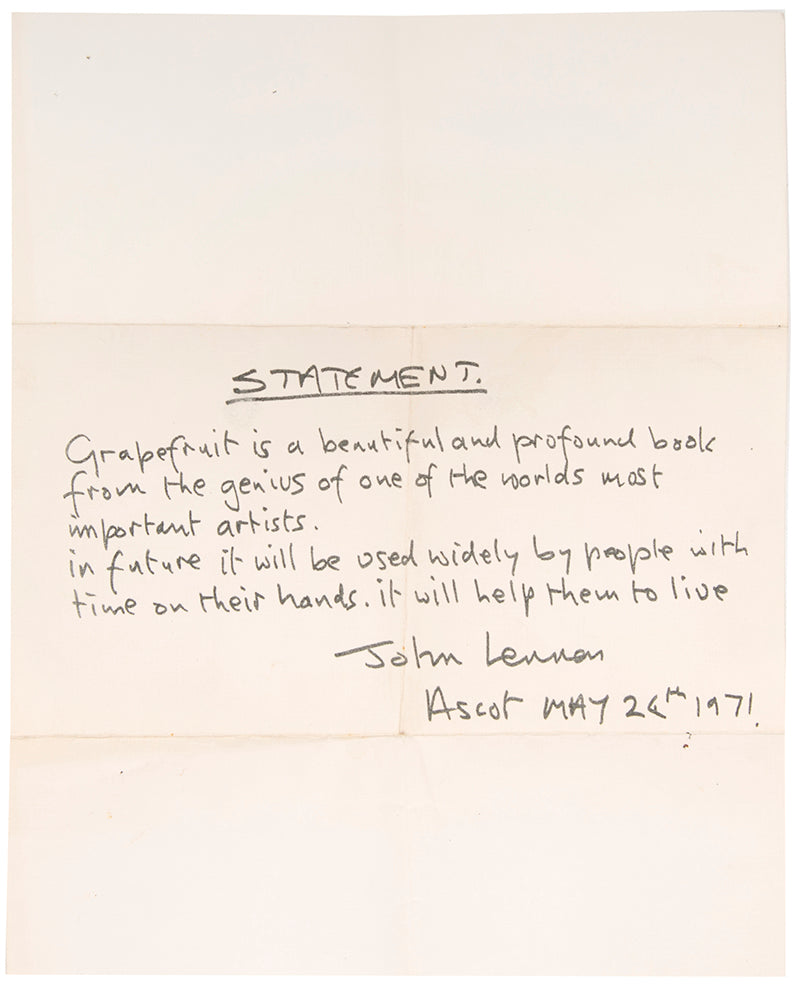 STATEMENT.
Grapefruit is a beautiful and profound book
from the genius of one of the worlds most
important artists.
in future it will be used widely by people with
time on their hands. it will help them to live
John Lennon
Ascot MAY 24th 1971.